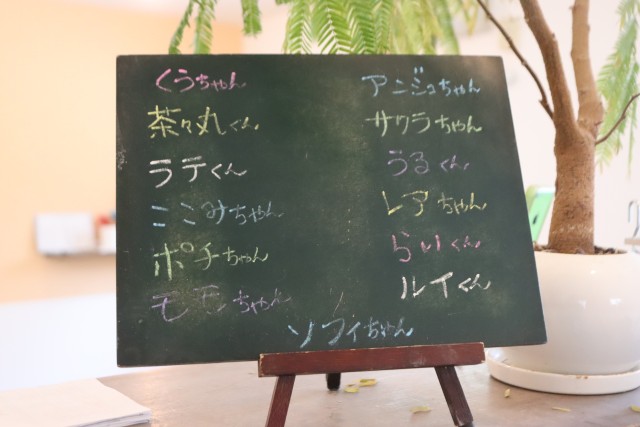 くうちゃん
茶々丸くん
ラテくん
ここみちゃん
ポチちゃん
モモちゃん
アンジュちゃん
サクラちゃん
うるくん
レアちゃん
らいくん
ルイくん
ソフィちゃん